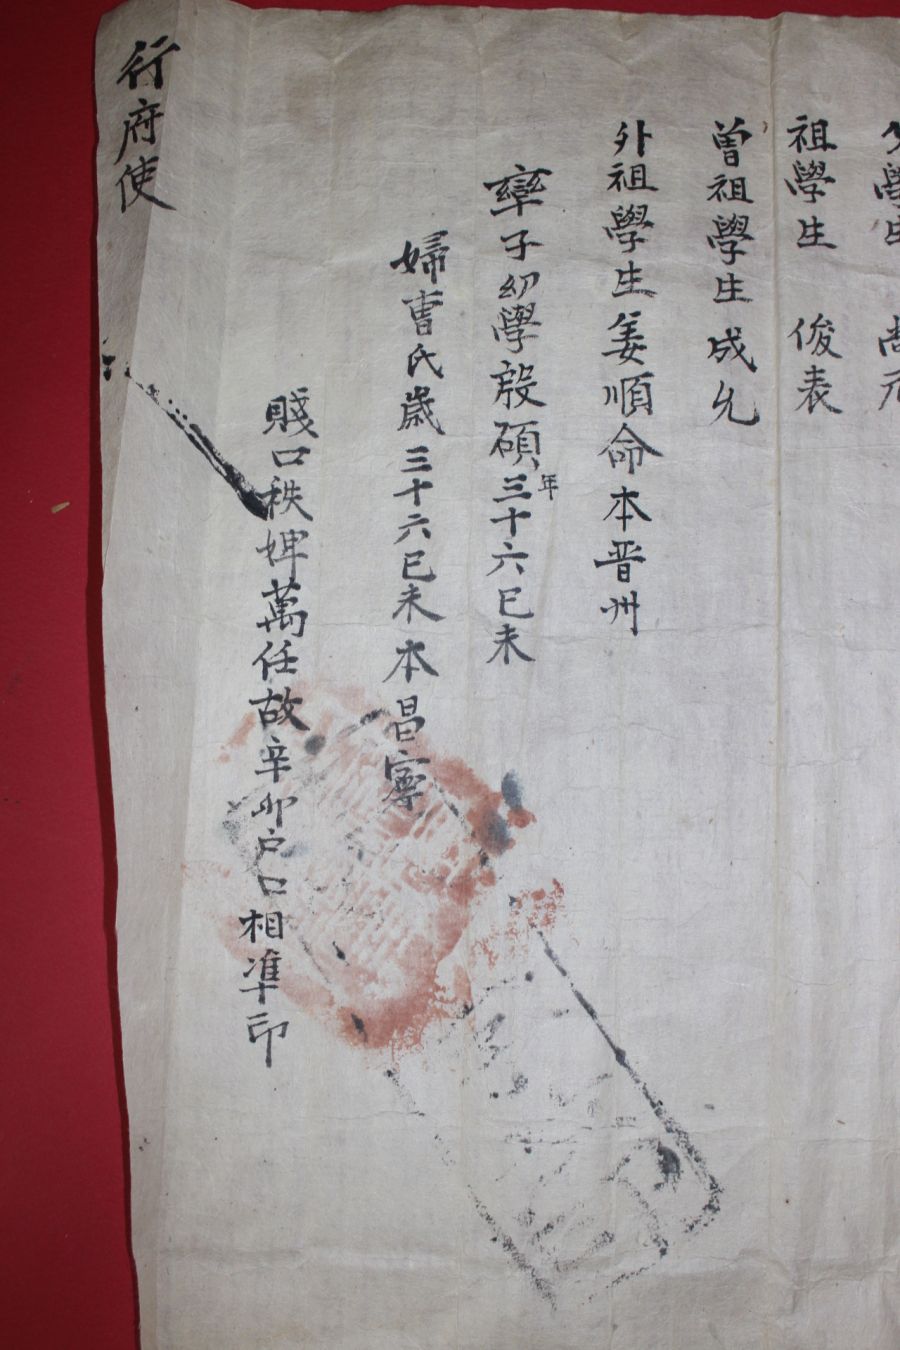 學生 尚元
祖學生 俊表
曾祖學生 成允
外祖學生姜順命本晋州
率子幼學殷碩年三十六己未
婦曺氏歲三十六己未本昌寧
賤口秩婢萬任故辛卯戶口相凖印
行府使